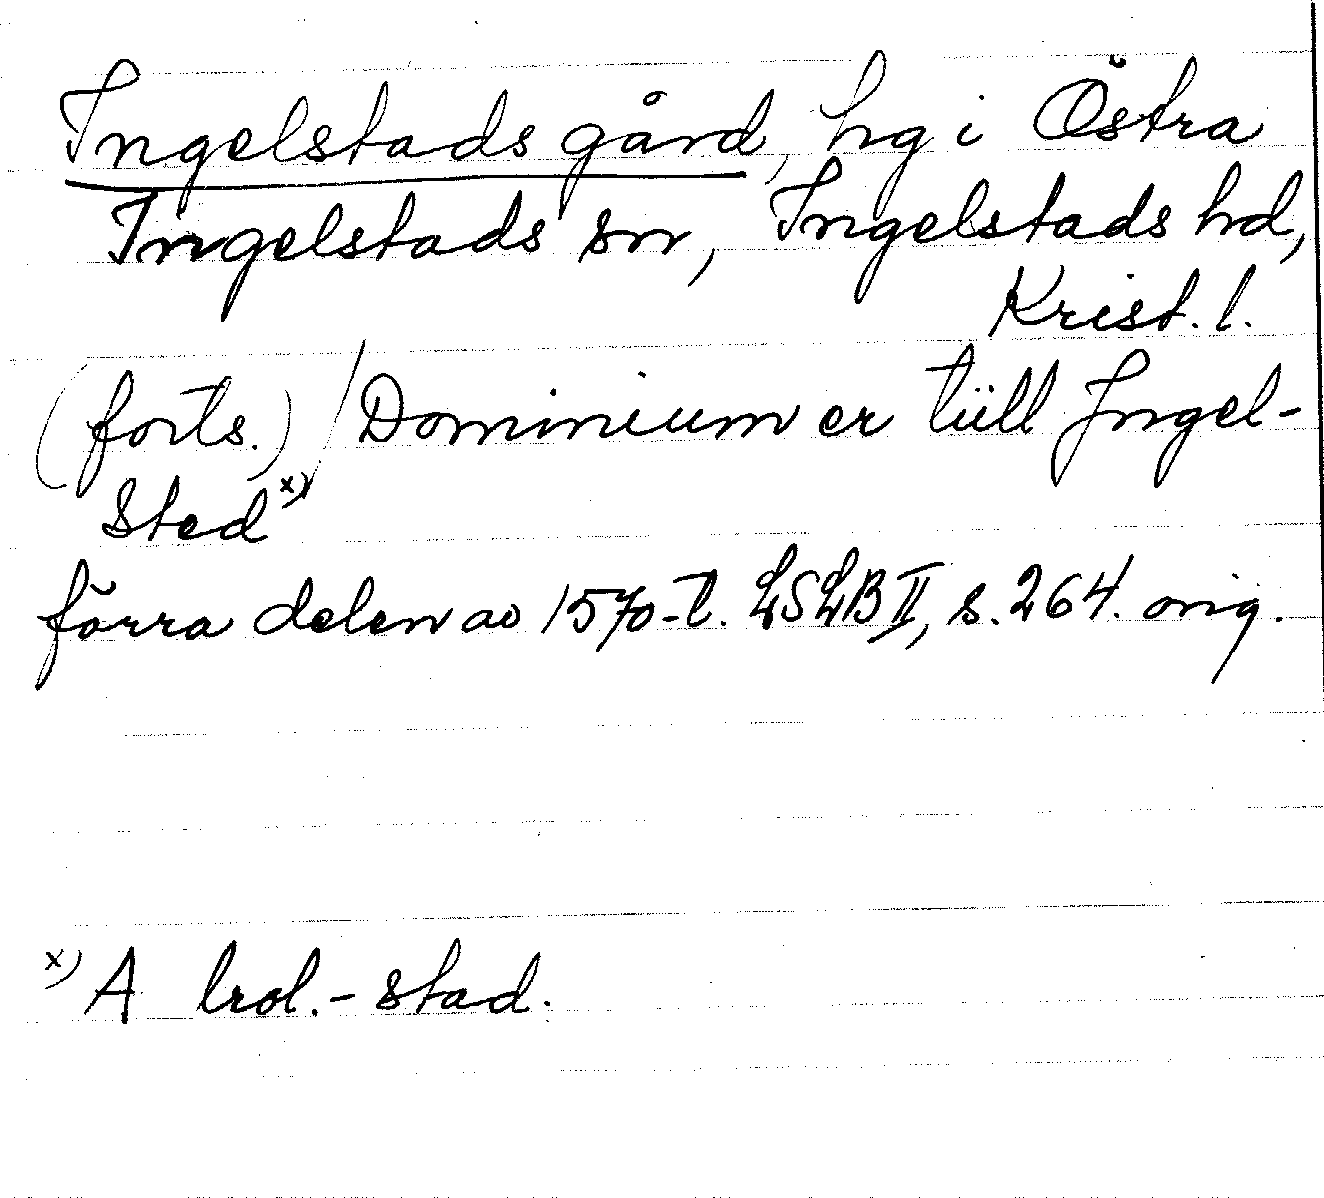 Ingelstads gård, hg i Östra
Ingelstads sn, Ingelstads hd,
Krist. l.
(forts.) / Dominium er tüll Ingel-
sted x)
förra delen av 1570-t. LSLB II, s. 264. orig.
x) A trol. - stad.